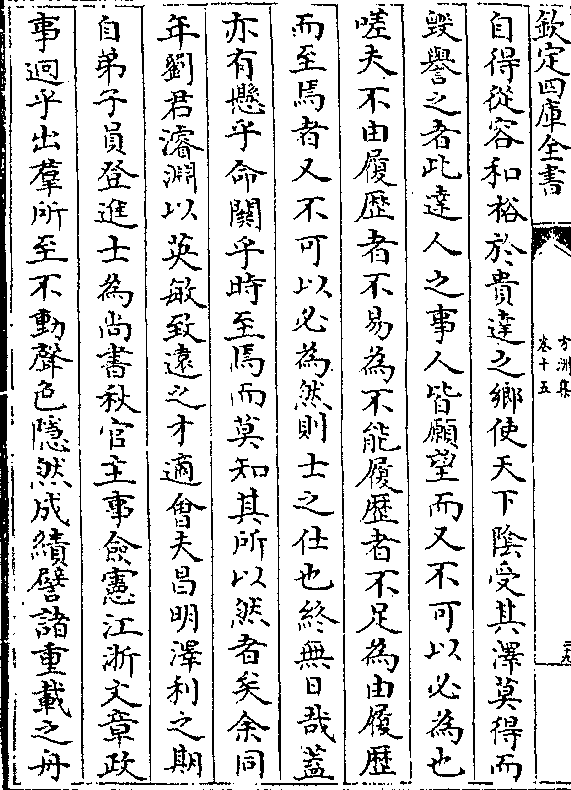 欽定四庫全書
方洲集
卷十五
自得從容和裕於貴達之鄉使天下陰受其澤莫得而
毀譽之者此達人之事人皆願望而又不可以必為也
嗟夫不由履歴者不易為不能履歴者不足為由履歴
而至焉者又不可以必為然則士之仕也終無日哉蓋
亦有懸乎命闗乎時至焉而莫知其所以然者矣余同
年劉君濬淵以英敏致逺之才適㑹夫昌明澤利之期
自弟子員登進士為尚書秋官主事僉憲江浙文章政
事迥乎出羣所至不動聲色隱然成績譬諸重載之舟